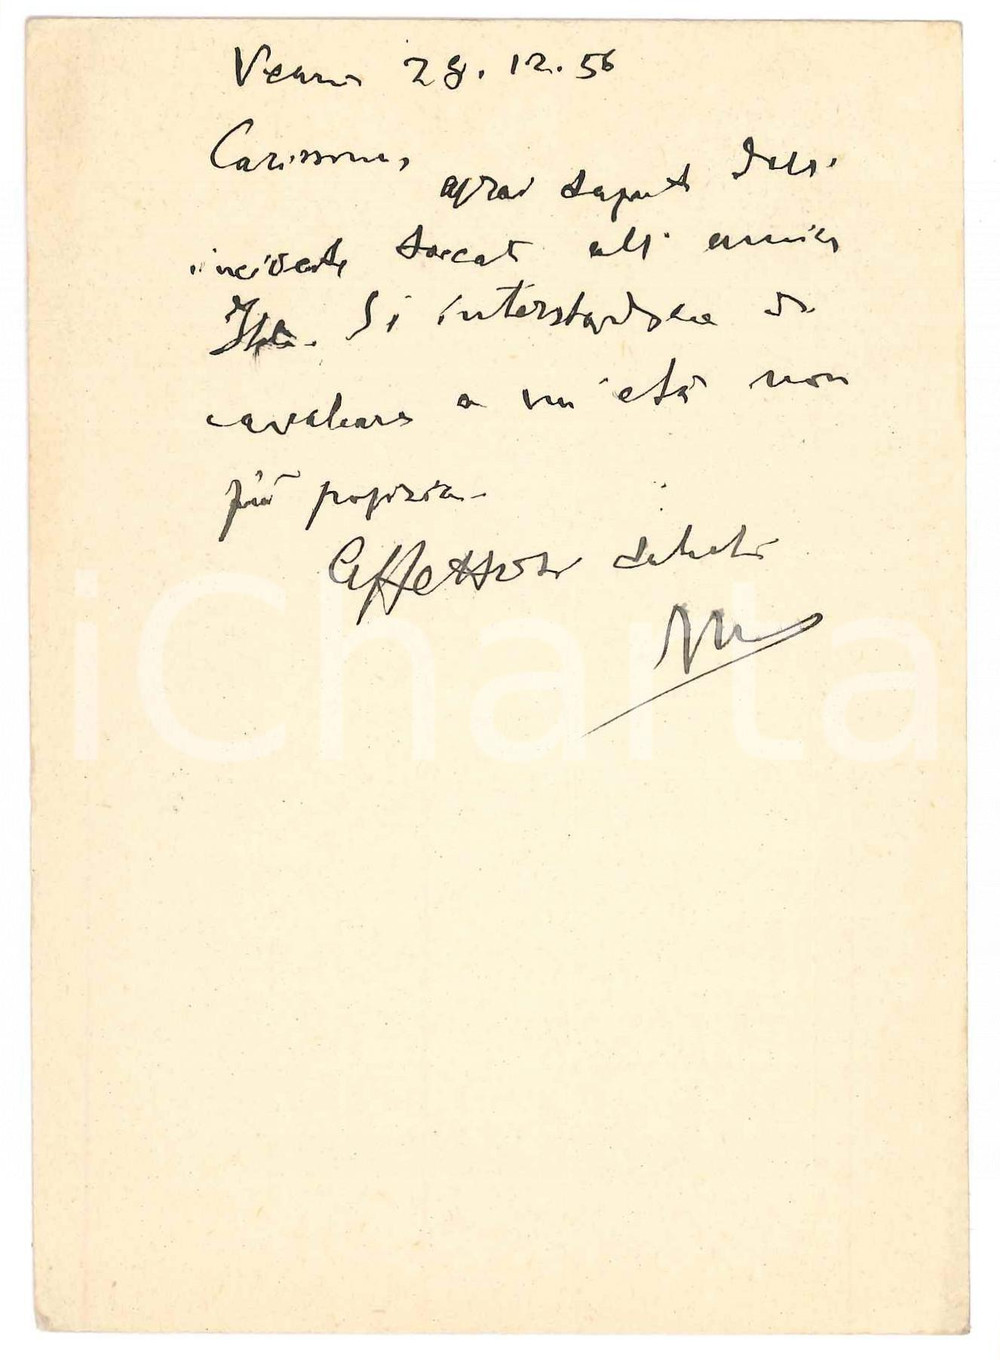 28.12.56
Carissimo,
avrai saputo dell'
incidente toccato all'amico
Si intestardiva di
cavalcare a un'età non
più propizia.
Affettuosi saluti
iCharta